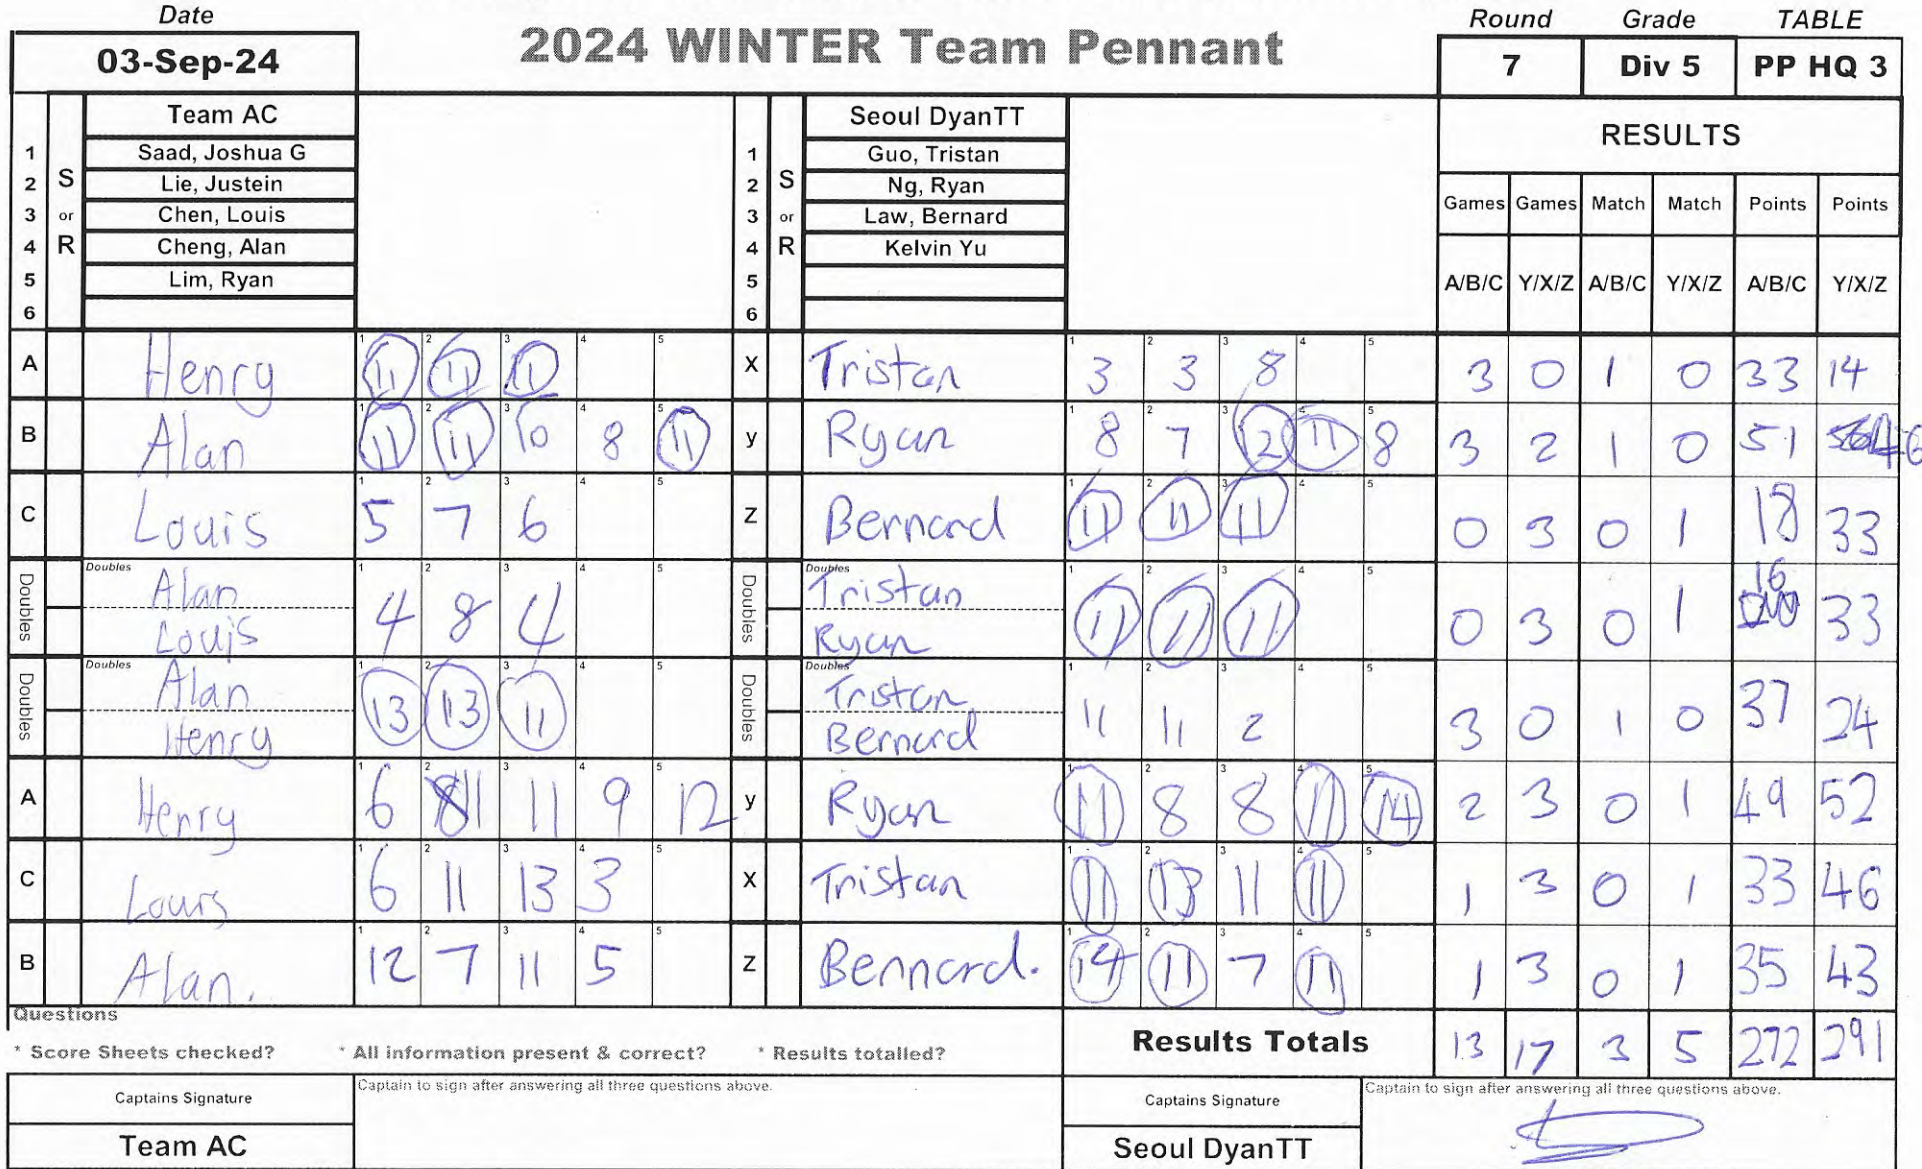 Date
03-Sep-24
2024 WINTER Team Pennant
Round Grade TABLE
7 Div 5 PP HQ 3
S or R
Team AC
1 Saad, Joshua G
2 Lie, Justein
3 Chen, Louis
4 Cheng, Alan
5 Lim, Ryan
6
S or R
Seoul DyanTT
1 Guo, Tristan
2 Ng, Ryan
3 Law, Bernard
4 Kelvin Yu
5
6
RESULTS
Games Games Match Match Points Points
A/B/C Y/X/Z A/B/C Y/X/Z A/B/C Y/X/Z
A Henry 11 11 11 X Tristan 3 3 8 3 0 1 0 33 14
B Alan 11 11 10 8 11 y Ryan 8 7 12 11 8 3 2 1 0 51 46
C Louis 5 7 6 Z Bernard 11 11 11 0 3 0 1 18 33
Doubles Doubles Alan 4 8 4 Doubles Doubles Tristan 11 11 11 0 3 0 1 16 33
Louis Ryan
Doubles Doubles Alan 13 13 11 Doubles Doubles Tristan 11 11 2 3 0 1 0 37 24
Henry Bernard
A Henry 6 11 11 9 12 y Ryan 11 8 8 11 14 2 3 0 1 49 52
C Louis 6 11 13 3 X Tristan 11 13 11 11 1 3 0 1 33 46
B Alan. 12 7 11 5 Z Bernard. 14 11 7 11 1 3 0 1 35 43
Questions
* Score Sheets checked? * All information present & correct? * Results totalled?
Results Totals 13 17 3 5 272 291
Captains Signature
Captain to sign after answering all three questions above.
Captains Signature
Captain to sign after answering all three questions above.
Team AC
Seoul DyanTT